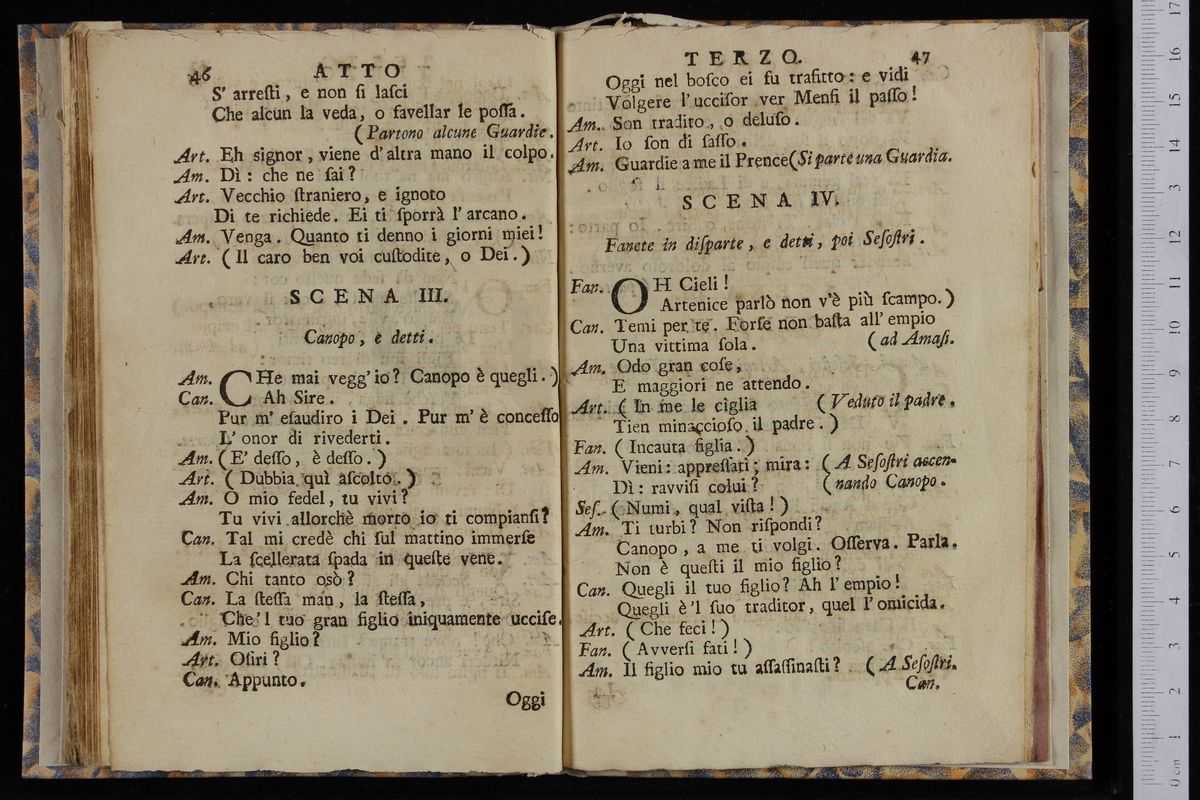 46 ATTO
S' arreſti, e non ſi laſci
Che alcun la veda, o favellar le poſſa.
(Partono alcune Guardie.
Art. Eh signor, viene d'altra mano il colpo.
Am. Dì: che ne ſai?
Art. Vecchio ſtraniero, e ignoto
Di te richiede. Ei ti ſporrà l'arcano.
Am. Venga. Quanto ti denno i giorni miei!
Art. (Il caro ben voi cuſtodite, o Dei.)
SCENA III.
Canopo, e detti.
Am. CHe mai vegg'io? Canopo è quegli.)
Can. Ah Sire.
Pur m' eſaudiro i Dei. Pur m'è conceſſo
L'onor di rivederti.
Am. (E' deſſo, è deſſo.)
Art. (Dubbia quì aſcolto.)
Am. O mio fedel, tu vivi?
Tu vivi allorchè morto io ti compianſi?
Can. Tal mi credè chi ſul mattino immerſe
La ſcellerata ſpada in queſte vene.
Am. Chi tanto osò?
Can. La ſteſſa man, la ſteſſa,
Che'l tuo gran figlio iniquamente ucciſe.
Am. Mio figlio?
Art. Oſiri?
Can. Appunto.
Oggi
TERZO. 47
Oggi nel boſco ei fu trafitto: e vidi
Volgere l'ucciſor ver Menfi il paſſo!
Am. Son tradito, o deluſo.
Art. Io ſon di ſaſſo.
Am. Guardie a me il Prence (Si parte una Guardia.
SCENA IV.
Fanete in diſparte, e detti, poi Seſoſtri.
Fan. OH Cieli!
Artenice parlò non v'è più ſcampo.)
Can. Temi per te. Forſe non baſta all'empio
Una vittima ſola. (ad Amaſi.
Am. Odo gran coſe,
E maggiori ne attendo.
Art. (In me le ciglia (Veduto il padre.
Tien minaccioſo il padre.)
Fan. (Incauta figlia.)
Am. Vieni: appreſſati; mira: (A Seſoſtri accen-
Dì: ravviſi colui? (nando Canopo.
Seſ. (Numi, qual viſta!)
Am. Ti turbi? Non riſpondi?
Canopo, a me ti volgi. Oſſerva. Parla.
Non è queſti il mio figlio?
Can. Quegli il tuo figlio? Ah l'empio!
Quegli è'l ſuo traditor, quel l'omicida.
Art. (Che feci!)
Fan. (Avverſi fati!)
Am. Il figlio mio tu aſſaſſinaſti? (A Seſoſtri.
Can.